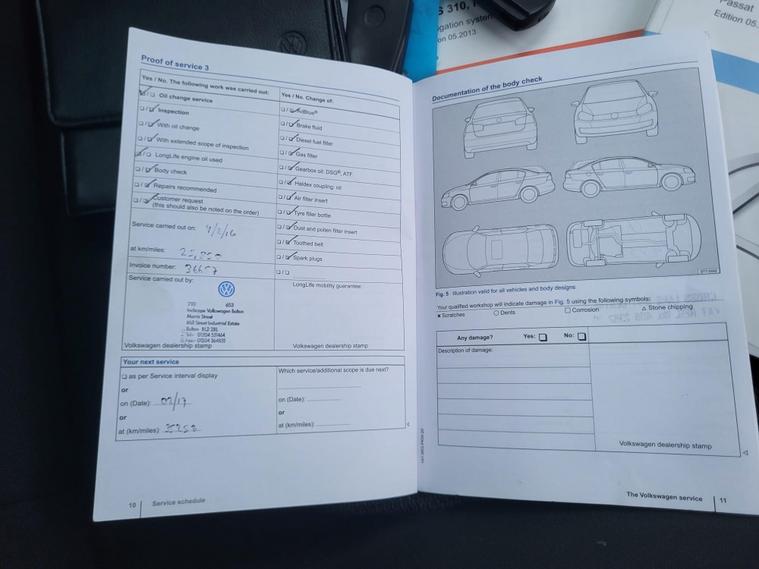 S 310,
igation system
on 05.2013
Passat
Edition 05.
Proof of service 3
Yes / No. The following work was carried out:
Oil change service
Inspection
With oil change
With extended scope of inspection
LongLife engine oil used
Body check
Repairs recommended
Customer request
(this should also be noted on the order)
Service carried out on:
at km/miles:
Invoice number:
Service carried out by:
653
Volkswagen Bolton
Street
Mill Street Industrial Estate
Bolton BL2
Volkswagen dealership stamp
Yes / No. Change of:
AdBlue®
Brake fluid
Diesel fuel filter
Gas filter
Gearbox oil: DSG®, ATF
Haldex coupling: oil
Air filter insert
Tyre filler bottle
Dust and pollen filter insert
Toothed belt
Spark plugs
LongLife mobility guarantee:
Volkswagen dealership stamp
Your next service
as per Service interval display
or
on (Date): 02/17
or
at (km/miles):
Which service/additional scope is due next?
on (Date):
or
at (km/miles):
10 Service schedule
Documentation of the body check
Fig. 5 Illustration valid for all vehicles and body designs
Your qualified workshop will indicate damage in Fig. 5 using the following symbols:
× Scratches ○ Dents □ Corrosion △ Stone chipping
Any damage? Yes: No:
Description of damage:
Volkswagen dealership stamp
The Volkswagen service 11